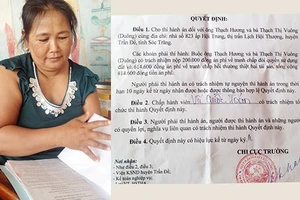 QUYẾT ĐỊNH:
Điều 1. Cho thi hành án đối với ông Thạch Hương và bà Thạch Thị Vuông
(Dương) cùng địa chỉ: nhà số K23 ấp Hội Trung, thị trấn Lịch Hội Thượng, huyện
Trần Đề, tỉnh Sóc Trăng.
Các khoản phải thi hành: Buộc ông Thạch Hương và bà Thạch Thị Vuông
có trách nhiệm nộp 200.000 đồng án phí về tranh chấp đòi quyền sử dụng
đất và 614.000 đồng án phí về tranh chấp bồi thường thiệt hại tài sản, tổng cộng
814.000 đồng tiền án phí.
Người phải thi hành án có trách nhiệm tự nguyện thi hành án trong thời
hạn 10 ngày kể từ ngày nhận được hoặc được thông báo hợp lệ Quyết định này.
Điều 2. Chấp hành viên
có trách nhiệm tổ
chức thi hành Quyết định này.
Người phải thi hành án, người được thi hành án và những người
có quyền lợi, nghĩa vụ liên quan có trách nhiệm thi hành Quyết định này.
Điều 4. Quyết định này có hiệu lực kể từ ngày ký.
Nơi nhận:
- Như điều 2, điều 3;
- Viện KSND huyện Trần Đề;
- Kế toán nghiệp vụ;
CHI CỤC TRƯỞNG